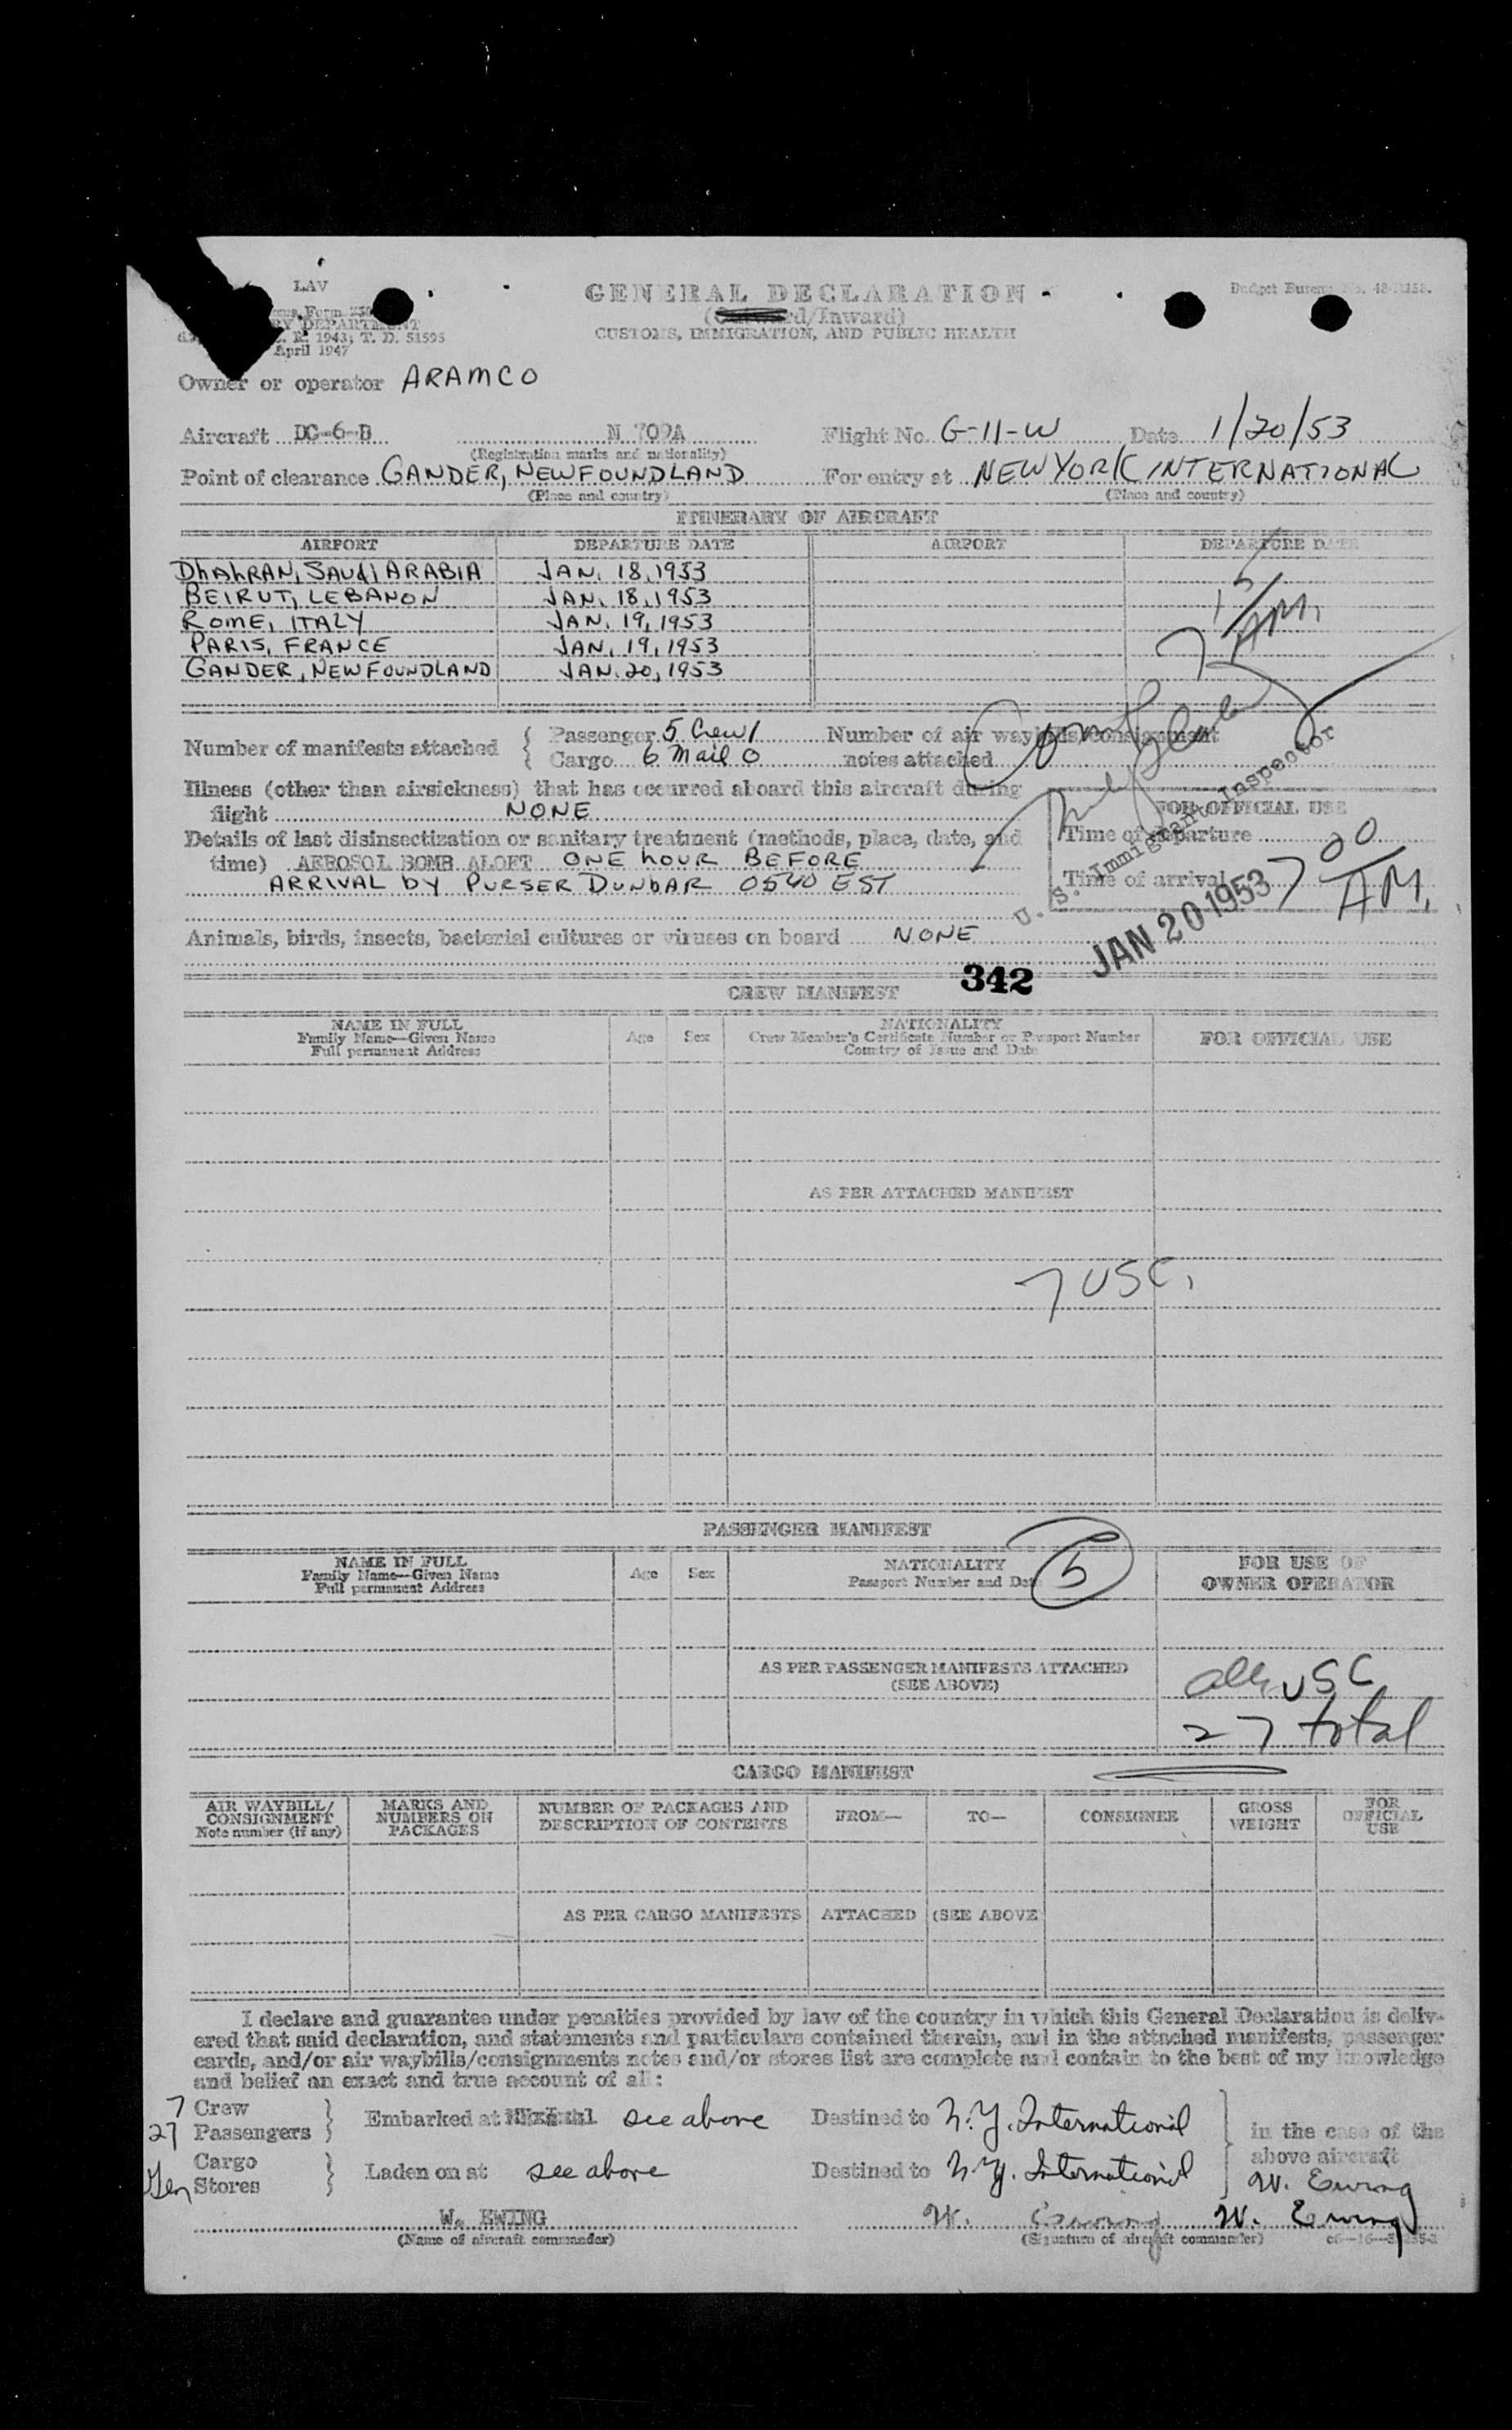 LAV
GENERAL DECLARATION
Budget Bureau No.
(Outward/Inward)
CUSTOMS, IMMIGRATION, AND PUBLIC HEALTH
1943; T. D. 51595
April 1947
Owner or operator ARAMCO
Aircraft DC-6-B N 709A Flight No. G-11-W Date 1/20/53
(Registration marks and nationality)
Point of clearance GANDER, NEWFOUNDLAND For entry at NEW YORK INTERNATIONAL
(Place and country) (Place and country)
ITINERARY OF AIRCRAFT
AIRPORT DEPARTURE DATE AIRPORT DEPARTURE DATE
DhAhRAN, SAUdi ARABIA JAN. 18, 1953
BEIRUT, LEBANON JAN. 18, 1953
ROME, ITALY JAN. 19, 1953
PARIS, FRANCE JAN. 19, 1953
GANDER, NEWFOUNDLAND JAN. 20, 1953
7 15/AM.
Number of manifests attached { Passenger 5 Crew 1 Number of air waybills/consignment
Cargo 6 Mail 0 notes attached
Illness (other than airsickness) that has occurred aboard this aircraft during
flight NONE
FOR OFFICIAL USE
Details of last disinsectization or sanitary treatment (methods, place, date, and
Time of departure
time) AEROSOL BOMB ALOFT ONE hOUR BEFORE
ARRIVAL by PURSER DUNBAR 0540 EST
Time of arrival 7 00/AM.
U. S. Immigrant Inspector
JAN 20 1953
Animals, birds, insects, bacterial cultures or viruses on board NONE
342
CREW MANIFEST
NAME IN FULL
Family Name—Given Name
Full permanent Address
Age Sex
NATIONALITY
Crew Member's Certificate Number or Passport Number
Country of Issue and Date
FOR OFFICIAL USE
AS PER ATTACHED MANIFEST
7 USC.
PASSENGER MANIFEST
NAME IN FULL
Family Name—Given Name
Full permanent Address
Age Sex
NATIONALITY
Passport Number and Date
5
FOR USE OF
OWNER OPERATOR
AS PER PASSENGER MANIFESTS ATTACHED
(SEE ABOVE)
all USC
27 total
CARGO MANIFEST
AIR WAYBILL/
CONSIGNMENT
Note number (if any)
MARKS AND
NUMBERS ON
PACKAGES
NUMBER OF PACKAGES AND
DESCRIPTION OF CONTENTS
FROM— TO— CONSIGNEE
GROSS
WEIGHT
FOR
OFFICIAL
USE
AS PER CARGO MANIFESTS ATTACHED (SEE ABOVE
I declare and guarantee under penalties provided by law of the country in which this General Declaration is deliv-
ered that said declaration, and statements and particulars contained therein, and in the attached manifests, passenger
cards, and/or air waybills/consignments notes and/or stores list are complete and contain to the best of my knowledge
and belief an exact and true account of all:
7 Crew
27 Passengers } Embarked at see above Destined to N.Y. International
in the case of the
above aircraft
Cargo
Stores } Laden on at see above Destined to N.Y. International
W. Ewing
W. EWING W. Ewing W. Ewing
(Name of aircraft commander) (Signature of aircraft commander)